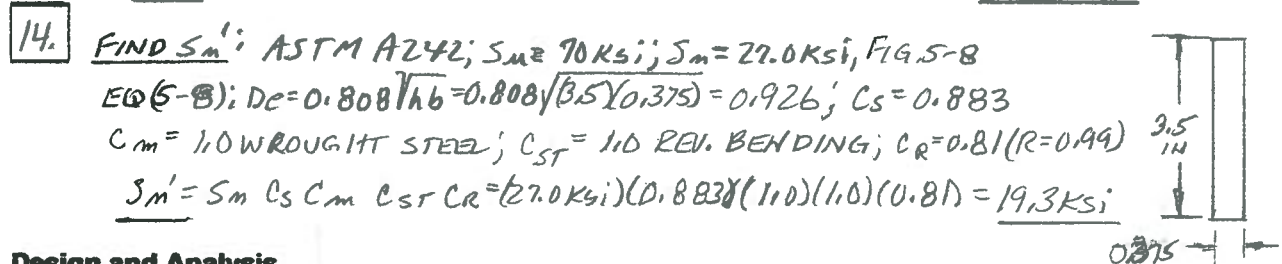 14. FIND Sn': ASTM A242; Su = 70 Ksi; Sn = 27.0 Ksi, FIG. 5-8
EQ (5-8); De = 0.808 √hb = 0.808 √(3.5)(0.375) = 0.926; Cs = 0.883
Cm = 1.0 WROUGHT STEEL; CST = 1.0 REV. BENDING; CR = 0.81 (R=0.99)
Sn' = Sn Cs Cm CST CR = (27.0 Ksi)(0.883)(1.0)(1.0)(0.81) = 19.3 Ksi
3.5
IN
0.375
Design and Analysis